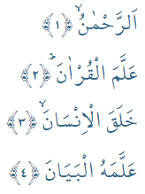 اَلرَّحْمٰنُۙ ﴿۱﴾
عَلَّمَ الْقُرْاٰنَؕ ﴿۲﴾
خَلَقَ الْاِنْسَانَۙ ﴿۳﴾
عَلَّمَهُ الْبَيَانَ ﴿۴﴾